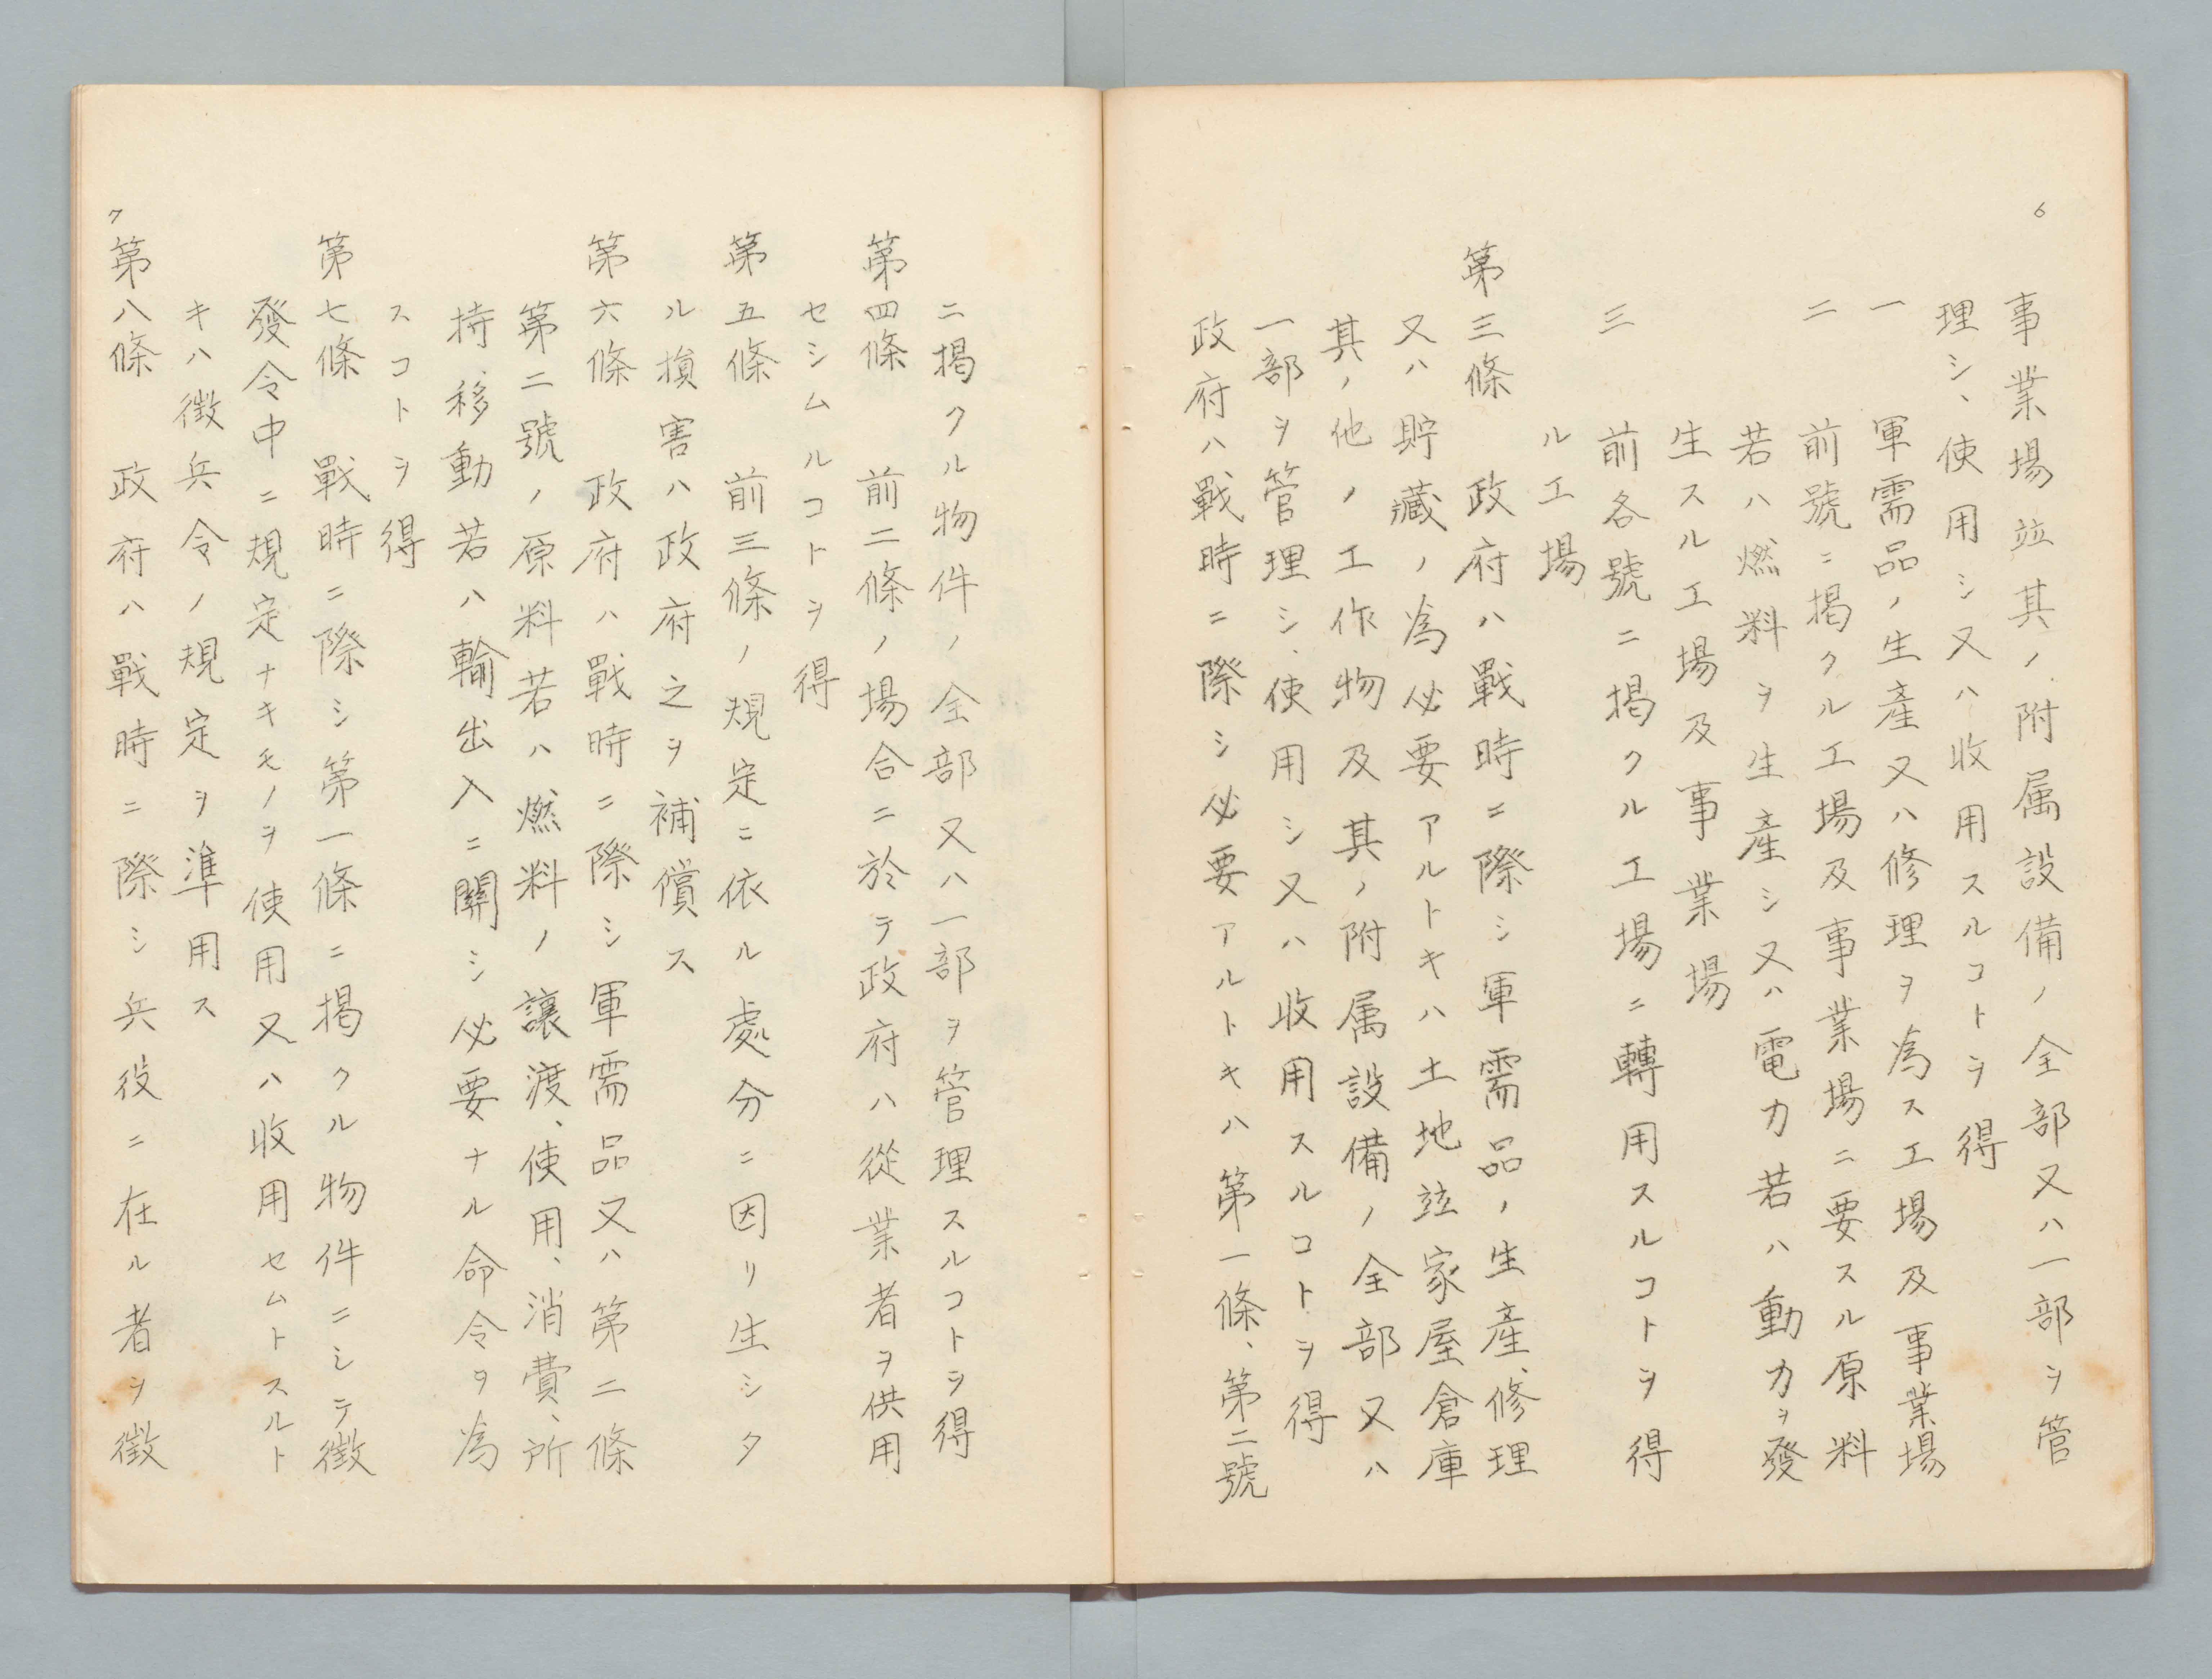 6
事業場竝其ノ附属設備ノ全部又ハ一部ヲ管
理シ、使用シ又ハ收用スルコトヲ得
一 軍需品ノ生産又ハ修理ヲ為ス工場及事業場
二 前號ニ掲クル工場及事業場ニ要スル原料
若ハ燃料ヲ生産シ又ハ電力若ハ動力ヲ發
生スル工場及事業場
三 前各號ニ掲クル工場ニ轉用スルコトヲ得
ル工場
第三條 政府ハ戰時ニ際シ軍需品ノ生産、修理
又ハ貯藏ノ為必要アルトキハ土地竝家屋倉庫
其ノ他ノ工作物及其ノ附属設備ノ全部又ハ
一部ヲ管理シ、使用シ又ハ收用スルコトヲ得
政府ハ戰時ニ際シ必要アルトキハ第一條、第二號
ニ掲クル物件ノ全部又ハ一部ヲ管理スルコトヲ得
第四條 前二條ノ場合ニ於テ政府ハ從業者ヲ供用
セシムルコトヲ得
第五條 前三條ノ規定ニ依ル處分ニ因リ生シタ
ル損害ハ政府之ヲ補償ス
第六條 政府ハ戰時ニ際シ軍需品又ハ第二條
第二號ノ原料若ハ燃料ノ讓渡、使用、消費、所
持、移動若ハ輸出入ニ關シ必要ナル命令ヲ為
スコトヲ得
第七條 戰時ニ際シ第一條ニ掲クル物件ニシテ徴
發令中ニ規定ナキモノヲ使用又ハ收用セムトスルト
キハ徴兵令ノ規定ヲ準用ス
第八條 政府ハ戰時ニ際シ兵役ニ在ル者ヲ徴
7